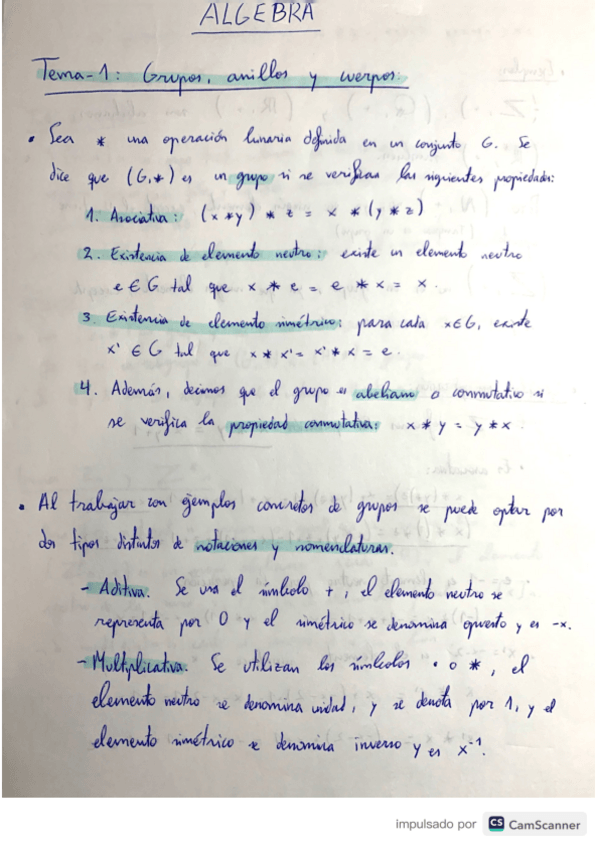 ALGEBRA
Tema-1: Grupos, anillos y cuerpos:
• Sea * una operación binaria definida en un conjunto G. Se
dice que (G,*) es un grupo si se verifican las siguientes propiedades:
1. Asociativa: (x*y) * z = x * (y*z)
2. Existencia de elemento neutro: existe un elemento neutro
e ∈ G tal que x * e = e * x = x.
3. Existencia de elemento simétrico: para cada x∈G, existe
x' ∈ G tal que x * x' = x' * x = e.
4. Además, decimos que el grupo es abeliano o conmutativo si
se verifica la propiedad conmutativa: x * y = y * x.
• Al trabajar con ejemplos concretos de grupos se puede optar por
dos tipos distintos de notaciones y nomenclaturas.
- Aditiva. Se usa el símbolo +, el elemento neutro se
representa por 0 y el simétrico se denomina opuesto y es -x.
- Multiplicativa. Se utilizan los símbolos · o *, el
elemento neutro se denomina unidad, y se denota por 1, y el
elemento simétrico se denomina inverso y es x⁻¹.
impulsado por CS CamScanner